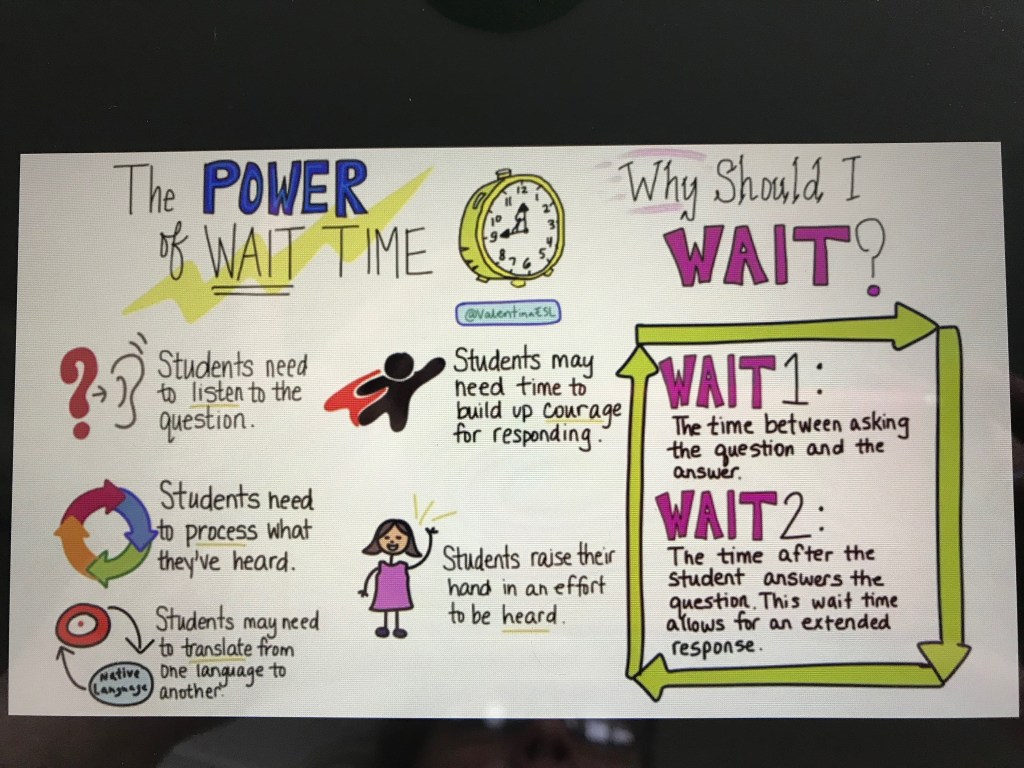 The POWER
of WAIT TIME
12
1
2
3
4
5
6
7
8
9
10
11
@ValentinaESL
Why Should I
WAIT?
?
Students need
to listen to the
question.
Students need
to process what
they've heard.
Students may need
to translate from
one language to
another.
Native
Language
Students may
need time to
build up courage
for responding.
Students raise their
hand in an effort
to be heard.
WAIT 1:
The time between asking
the question and the
answer.
WAIT 2:
The time after the
student answers the
question. This wait time
allows for an extended
response.